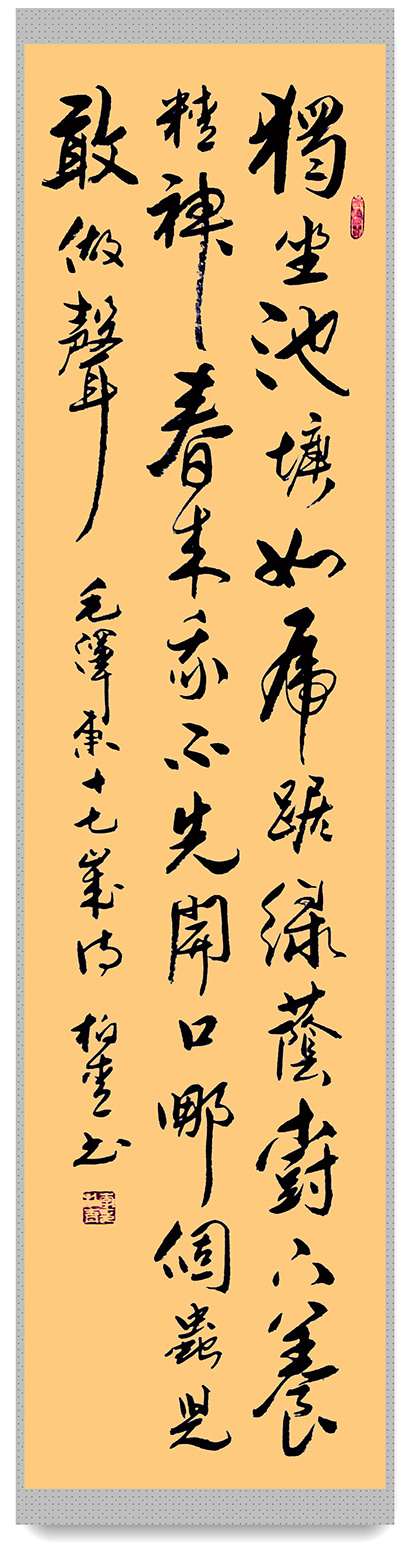 獨坐池塘如虎踞綠蔭樹下養
精神春來我不先開口哪個蟲兒
敢做聲
毛澤東十七歲詩 柏书